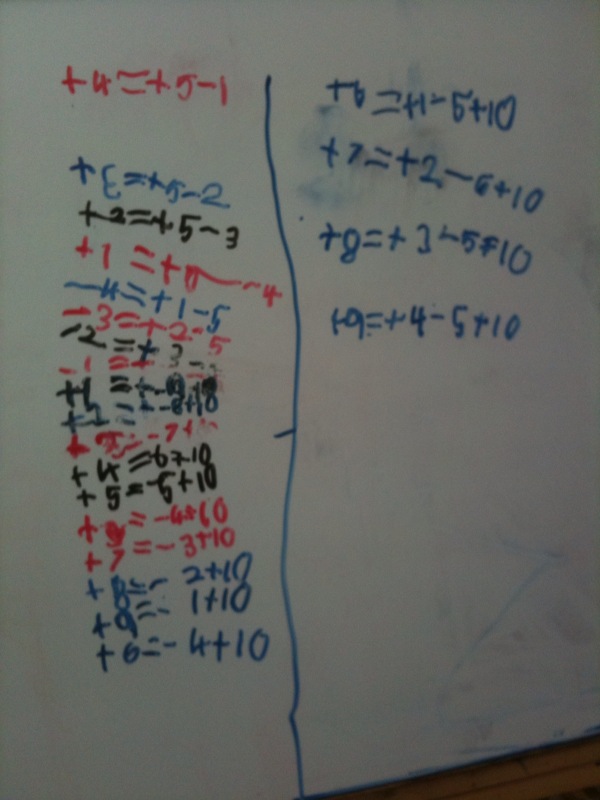 +4=+5-1
+3=+5-2
+2=+5-3
+1=+5-4
-4=+1-5
-3=+2-5
-2=+3-
-1=+
+1=+-9+
+2=-8+10
+3=-7+
+4=6+10
+5=-5+10
=-4+10
+7=-3+10
+8=-2+10
+9=-1+10
+6=-4+10
+6=+1-5+10
+7=+2-5+10
+8=+3-5+10
+9=+4-5+10